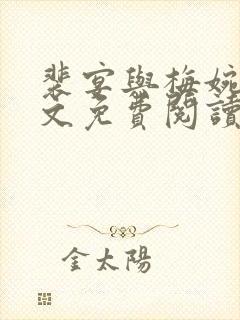 裴宴與梅婉
文免費閱讀
金太陽